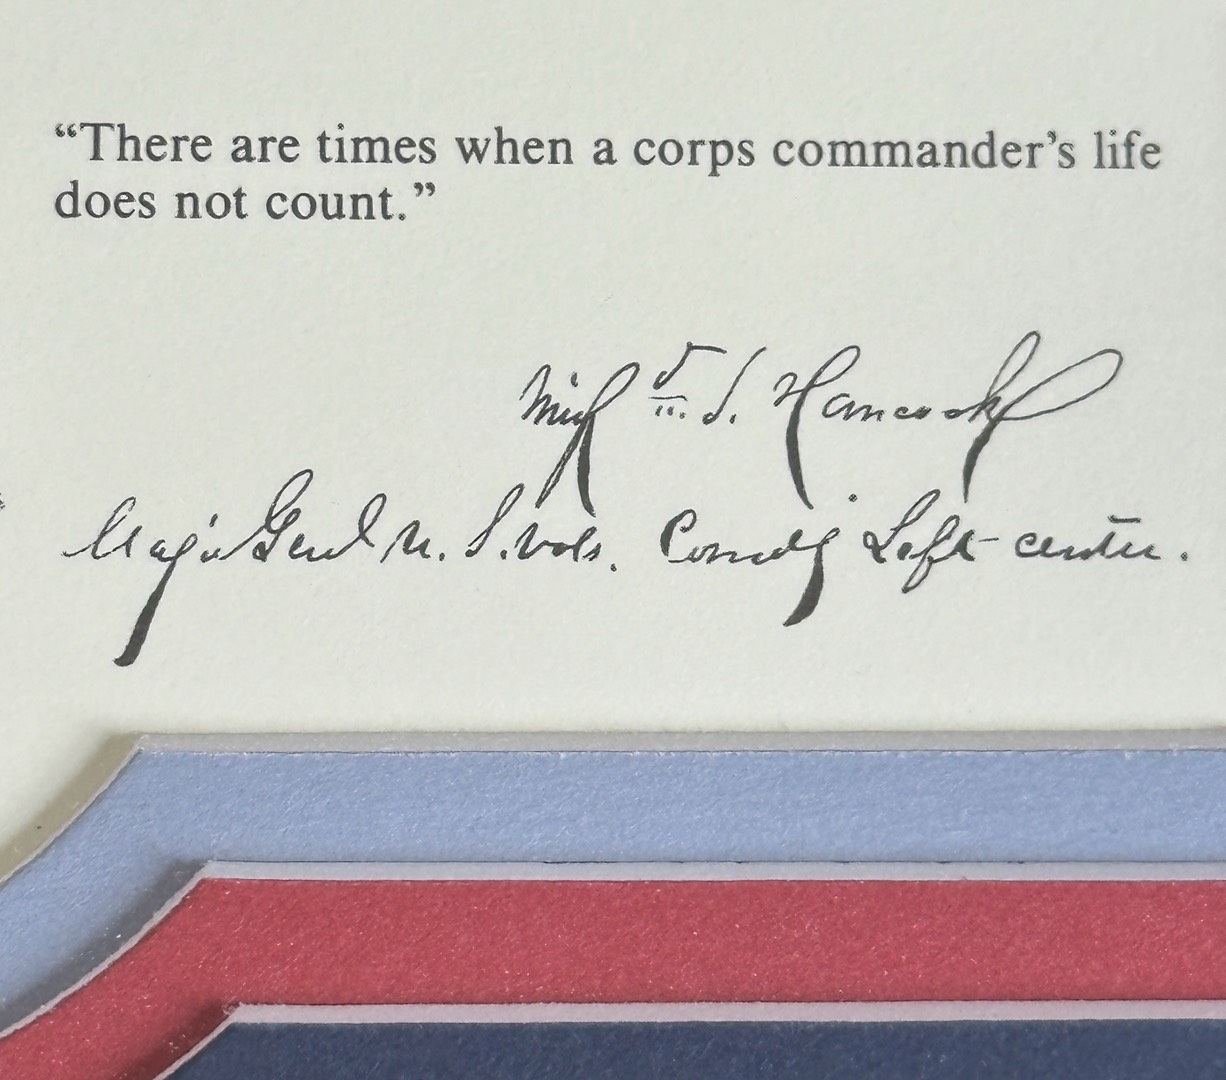 “There are times when a corps commander’s life
does not count.”
Winf^d. S. Hancock
Maj. Genl U. S. Vols. Comdg Left center.